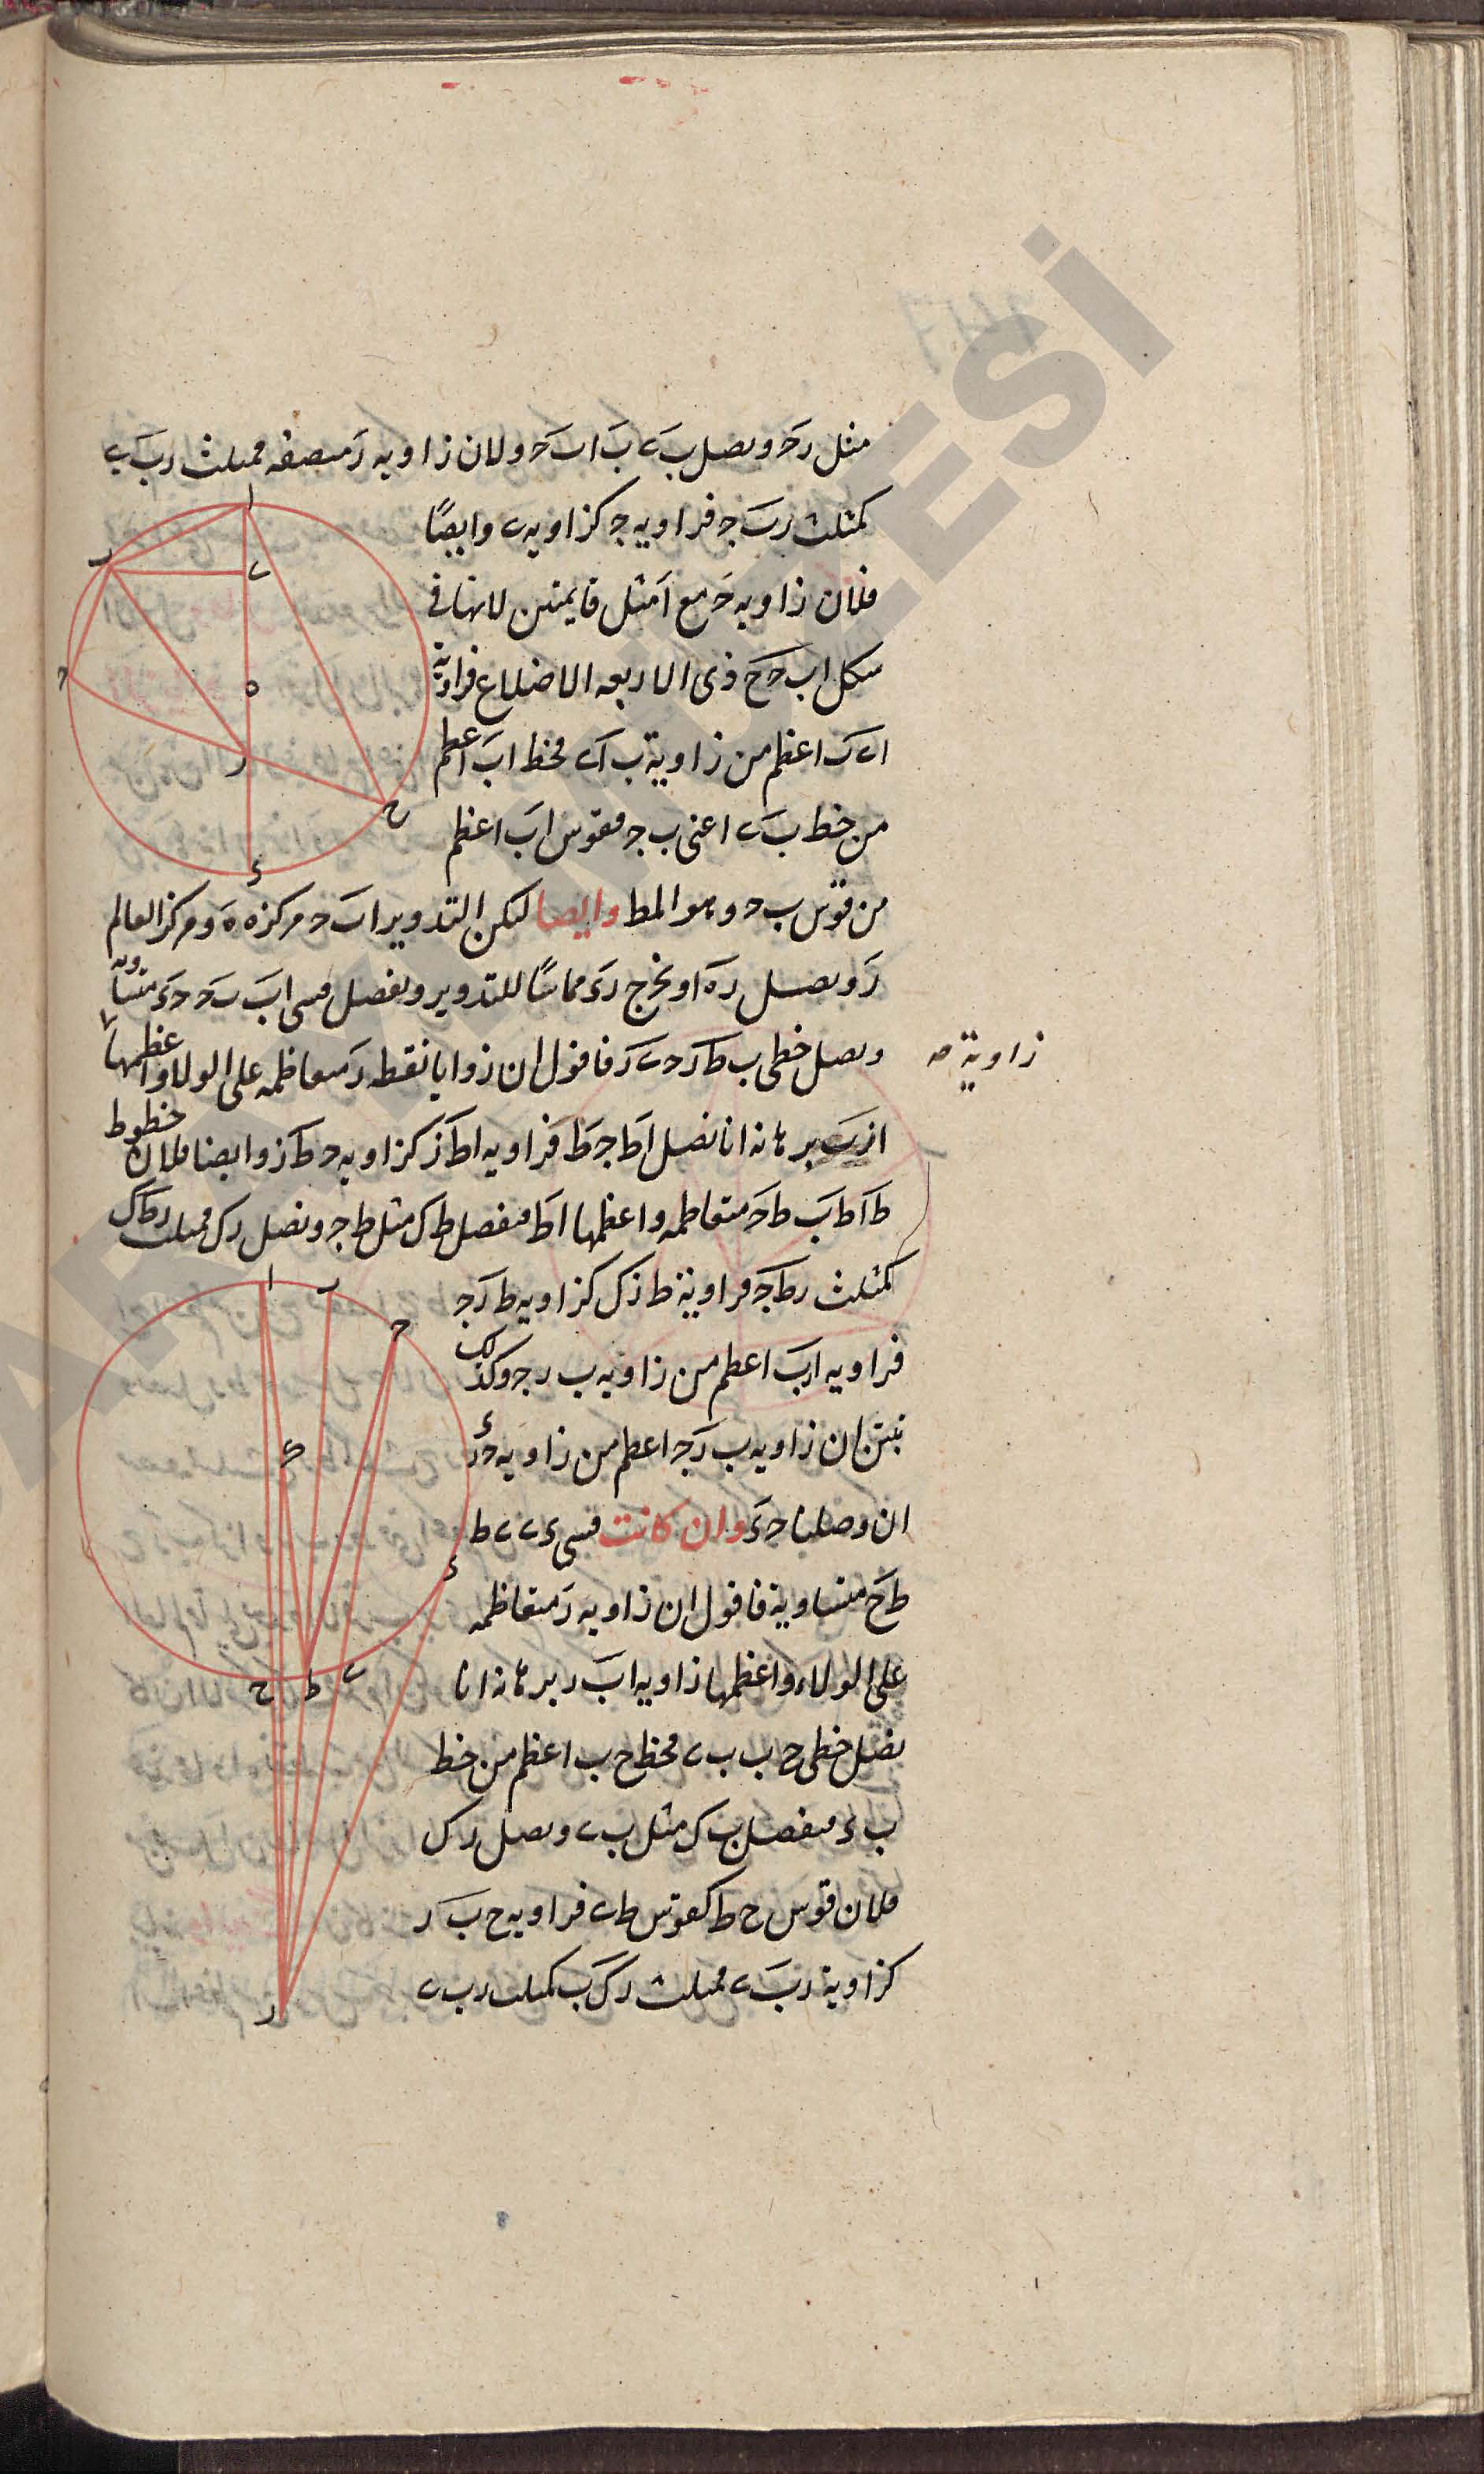 مثل رح ونصل ب ى ب ا ب ح ولان زاويه ر منصفه فمثلث ر ب ى
كمثلث ر ب ج فزاويه ج كزاويه ى وايضًا
فلان زاويه ح مع ا مثل قايمتين لانها فى
شكل ا ب ح ح ذى الاربعه الاضلاع فزاوية
ا ى ب اعظم من زاوية ب ا ى فخط ا ب اعظم
من خط ب ى اعنى ب ج فقوس ا ب اعظم
من قوس ب ح وهو المط وايضا لنكن التدوير ا ب ح مركزه ه ومركز العالم
ر ونصل ر ه ا ونخرج ر ء مماسًا للتدوير ونفصل قسى ا ب ب ح ح ء متساوية
ونصل خطى ب ط ر ح ى ر فاقول ان زوايا نقطه ر متعاظمه على الولا واعظمها
زاوية صه
ا ر ب برهانه انا نصل ا ط ج ط فزاويه ا ط ز كزاويه ح ط ز وايضا فلان خطوط
ط ا ط ب ط ح متعاظمه واعظمها ا ط فنفصل ط ك مثل ط ج ونصل ر ك فمثلث ر ط ك
كمثلث ر ط ج فزاوية ط ز ك كزاويه ط ر ج
فزاويه ا ر ب اعظم من زاويه ب ر ج وكذلك
نبتن ان زاويه ب ر ج اعظم من زاويه ح ر ء
ان وصلنا ح ء وان كانت قسى ء ى ى ط
ط ح متساوية فاقول ان زاويه ر متعاظمه
على الولاء واعظمها زاويه ا ب ر برهانه انا
نصل خطى ح ب ب ى فخط ح ب اعظم من خط
ب ء فنفصل ب ك مثل ب ى ونصل ر ك
فلان قوس ح ط كقوس ط ى فزاويه ح ب ر
كزاوية ر ب ى فمثلث ر ك ب كمثلث ر ب ى